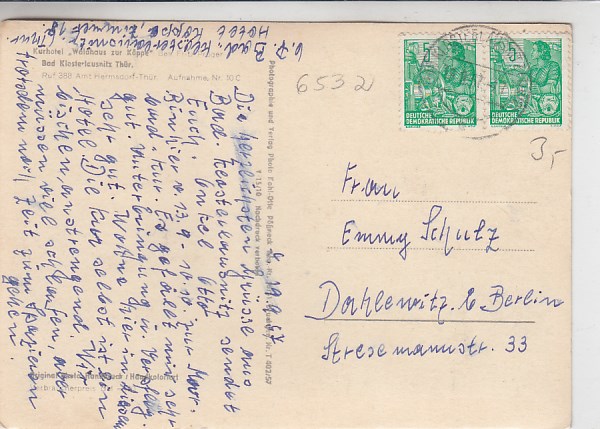 z. Z. Bad Klosterlausnitz
Hotel Köppe, Zimmer 18.
Kurhotel „Waldhaus zur Köppe"
Bad Klosterlausnitz Thür.
Ruf 388 Amt Hermsdorf-Thür. Aufnahme: Nr. 10 C
6532
5
5
DEUTSCHE
DEMOKRATISCHE REPUBLIK
DEUTSCHE
DEMOKRATISCHE REPUBLIK
3,-
Die herzlichsten Grüsse aus
Bad Klosterlausnitz sendet
Euch Onkel Otto
Bin hier v. 13.9. 10.10. zur Moor-
bad. Kur. Es gefällt mir sehr
gut. Unterbringung u. Verpfleg.
sehr gut. Wohne hier in diesem
Hotel. Die Kur selbst ist ein
bischen anstrengend. Wir
müssen viel schlafen, aber
trotzdem noch Zeit zum Spazieren
gehen.
Photographie und Verlag
Nachdruck verboten
Frau
Emmy Schulz
Dahlewitz b Berlin
Stresemannstr. 33
Handkoloriert